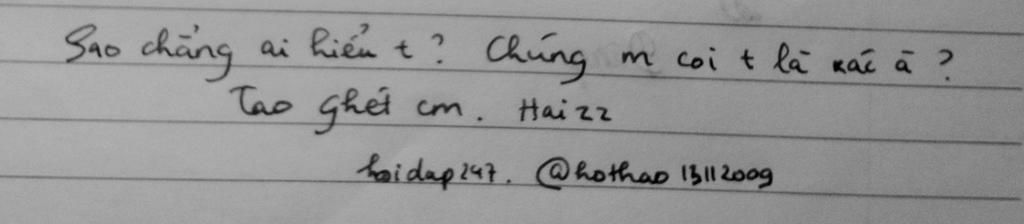 Sao chẳng ai hiểu t? Chúng m coi t là xác à?
Tao ghét cm. Haizz
hoidap247. @hothao13112009